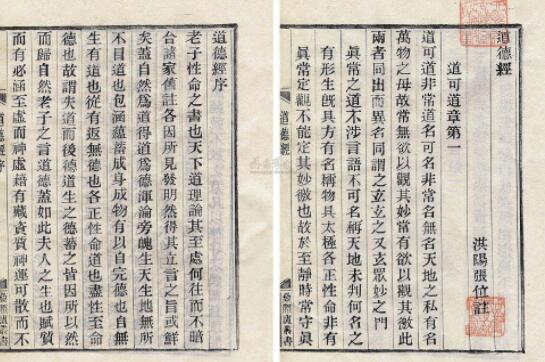 道德經
洪陽張位註
道可道章第一
道可道非常道名可名非常名無名天地之始有名
萬物之母故常無欲以觀其妙常有欲以觀其徼此
兩者同出而異名同謂之玄玄之又玄眾妙之門
眞常之道不涉言語不可名稱天地未判何名之
有形生旣具方有名稱物具太極各正性命非有
眞常定觀不能定其妙徼也故於至靜時常守眞
道德經
叢書
道德經序
老子性命之書也天下道理論其至處何往而不暗
合諸家舊註各因所見發明然得其立言之旨或鮮
矣蓋自然爲道得道爲德渾淪旁魄生天生地無所
不目道也包涵蘊蓄成身成物有以自完德也自無
生有道也從有返無德也各正性命道也盡性至命
德也故謂失道而後德道生之德蓄之皆因所以然
而歸自然老子之言道德蓋如此夫人之生也賦質
而有必涵至虛而神虛藉有藏質神運可散而不
道德經序
叢書